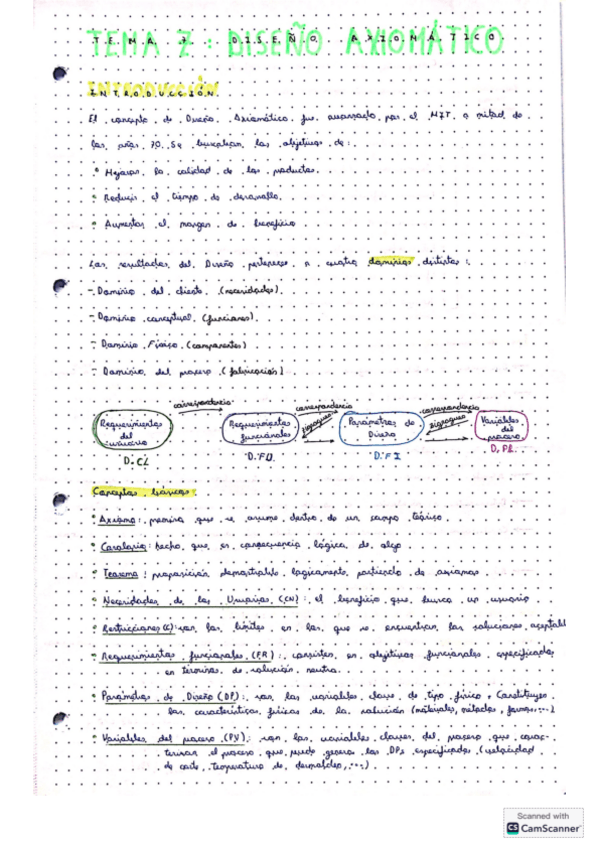 TEMA 7: DISEÑO AXIOMÁTICO
INTRODUCCIÓN
El concepto de Diseño Axiomático fue avanzado por el MIT a mitad de
los años 70. Se buscaban los objetivos de:
• Mejorar la calidad de los productos.
• Reducir el tiempo de desarrollo.
• Aumentar el margen de beneficio
Los resultados del Diseño pertenecen a cuatro dominios distintos:
- Dominio del cliente (necesidades)
- Dominio conceptual (funciones)
- Dominio Físico (componentes)
- Dominio del proceso (fabricación)
correspondencia correspondencia correspondencia
Requerimientos del usuario
zigzagueo
Requerimientos funcionales
zigzagueo
Parámetros de Diseño
Variables del proceso
D.CL D.FU. D.FI D.PR.
Conceptos básicos:
• Axioma: premisa que se asume dentro de un campo teórico
• Corolario: hecho que es consecuencia lógica de algo
• Teorema: proposición demostrable lógicamente partiendo de axiomas
• Necesidades de los Usuarios (CN): el beneficio que busca un usuario
• Restricciones (C): son los límites en los que se encuentran las soluciones aceptabl
• Requerimientos funcionales (FR): consisten en objetivos funcionales especificados
en términos de solución neutra.
• Parámetros de Diseño (DP): son las variables clave de tipo físico. Constituyen
las características físicas de la solución (materiales, métodos, formas,...)
• Variables del proceso (PV): son las variables claves del proceso que carac-
terizan el proceso que puede generar los DPs especificados (velocidad
de corte, temperatura de desmoldeo,...)
Scanned with
CS CamScanner